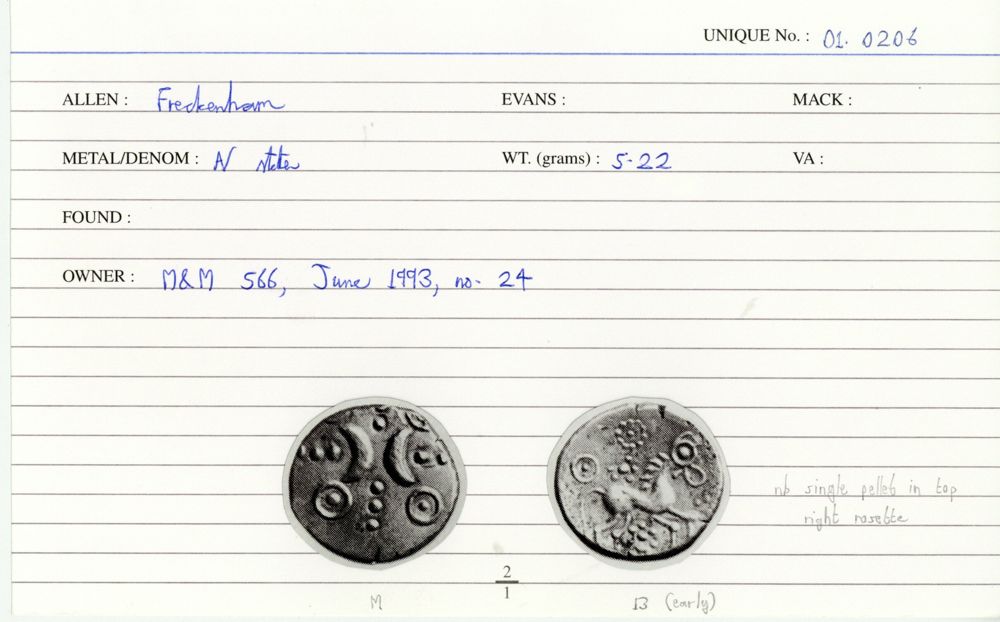 UNIQUE No. : 01. 0206
ALLEN : Freckenham EVANS : MACK :
METAL/DENOM : N stater WT. (grams) : 5.22 VA :
FOUND :
OWNER : M&M 566, June 1993, no. 24
nb single pellet in top
right rosette
2
1
M B (early)